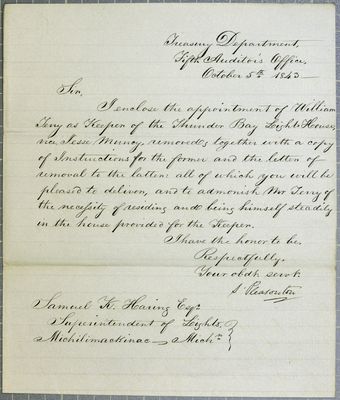 Treasury Department,
Fifth Auditor's Office,
October 5th 1843—
Sir,
I enclose the appointment of William
Terry as Keeper of the Thunder Bay Light House,
vice Jesse Muncy, removed; together with a copy
of Instructions for the former and the letter of
removal to the latter: all of which you will be
pleased to deliver, and to admonish Mr Terry of
the necessity of residing and being himself steadily
in the house provided for the Keeper.
I have the honor to be,
Respectfully,
Your obdt. servt.
S. Pleasonton
Samuel K. Haring Esqr.
Superintendent of Lights,
Michilimackinac— Michn.